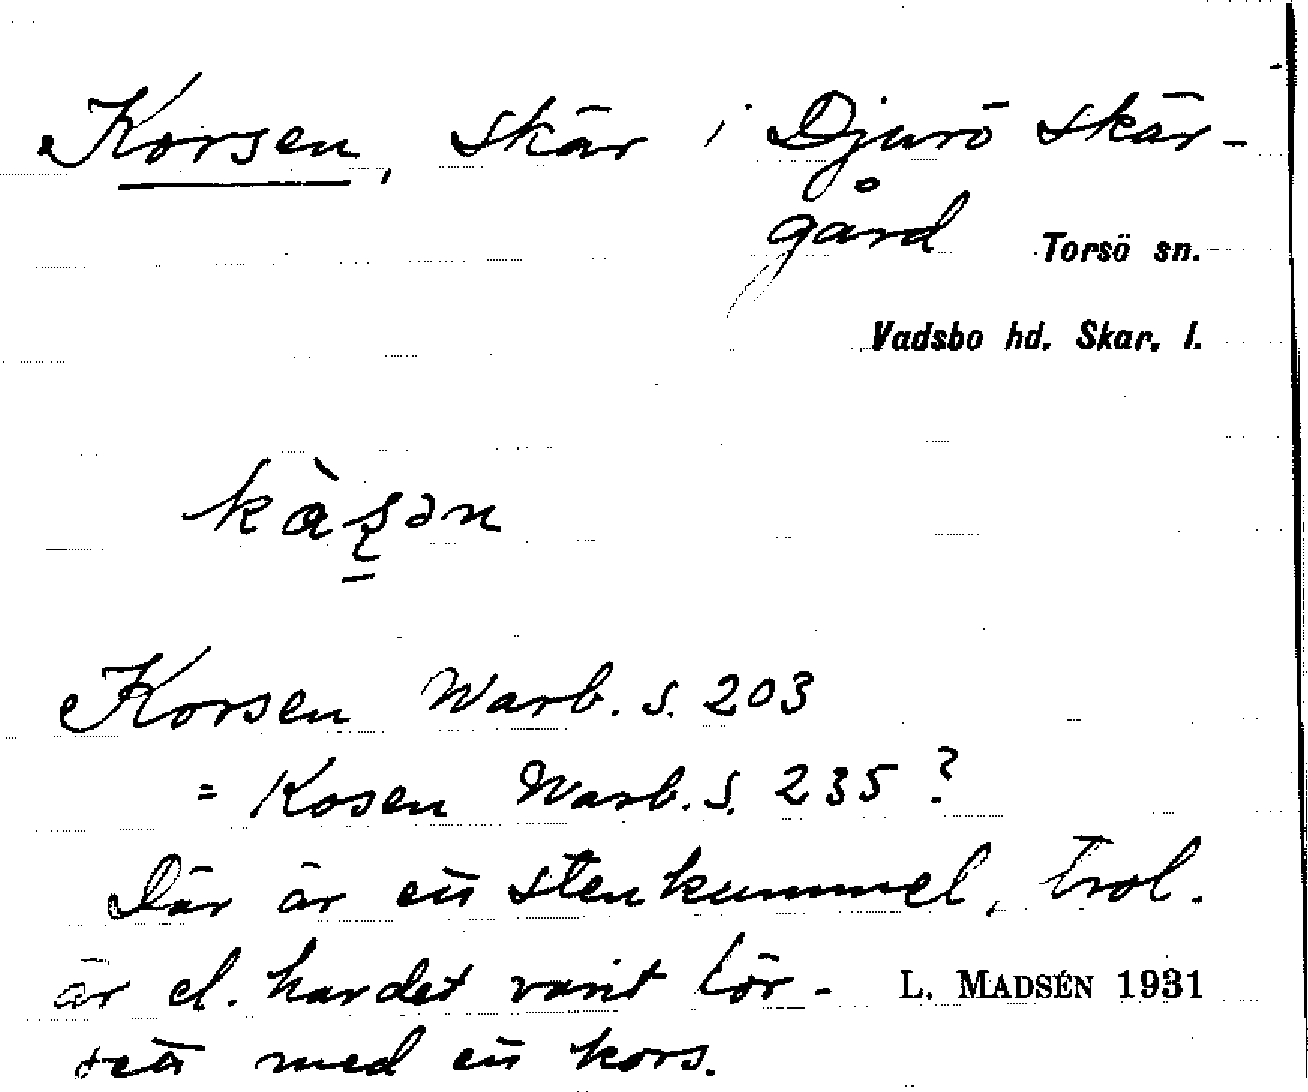 Korsen, skär i Djurö skär-
gård Torsö sn.
Vadsbo hd. Skar. l.
kàʂən
Korsen Warb. s. 203
= Kosen Warb. s. 235 ?
Där är ett stenkummel, trol.
är el. har det varit för-
sett med ett kors.
L. MADSÉN 1931